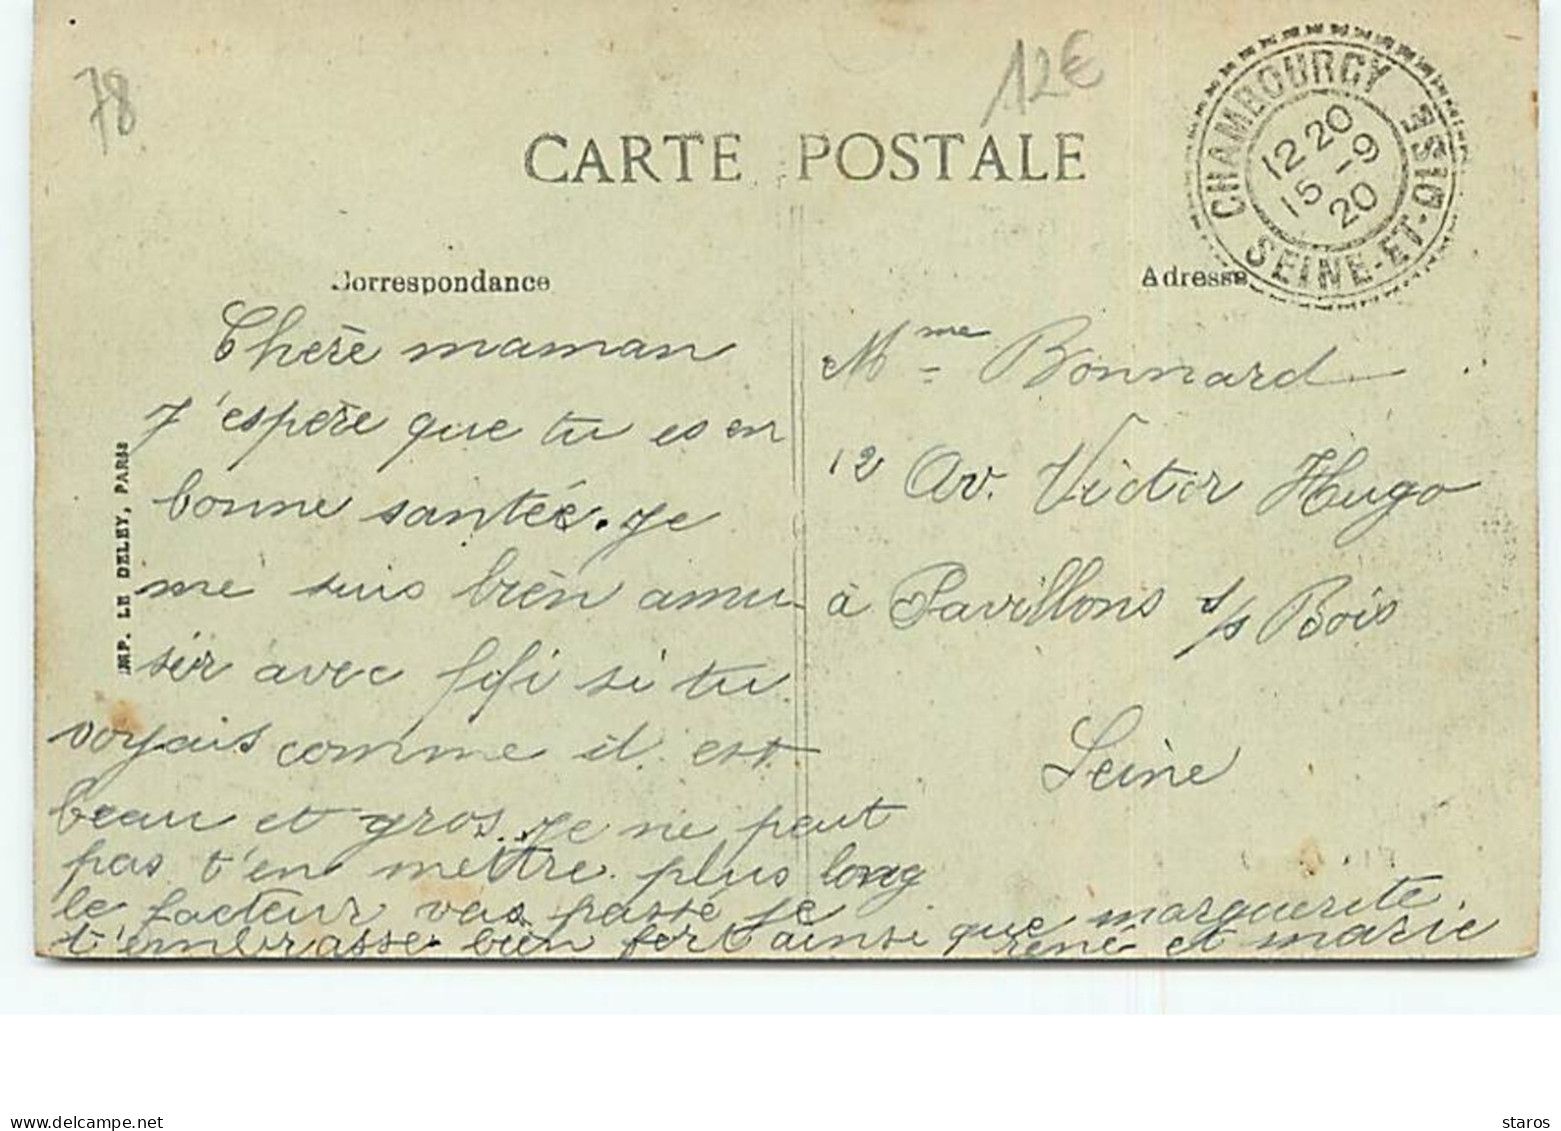 78
12€
CARTE POSTALE
CHAMBOURCY
12 20
15 -9
20
SEINE-ET-OISE
Correspondance
Adresse
IMP. LE DELEY, PARIS
Chère maman
J'espère que tu es en
bonne santée. Je
me suis bien amu
sér avec fifi si tu
voyais comme il est
beau et gros. Je ne peut
pas t'en mettre plus long
le facteur vas passé je
t'embrasse bien fort ainsi que marguerite,
rené et marie
Mme Bonnard
12 Av. Victor Hugo
à Pavillons s/s Bois
Seine
delcampe.net
staros